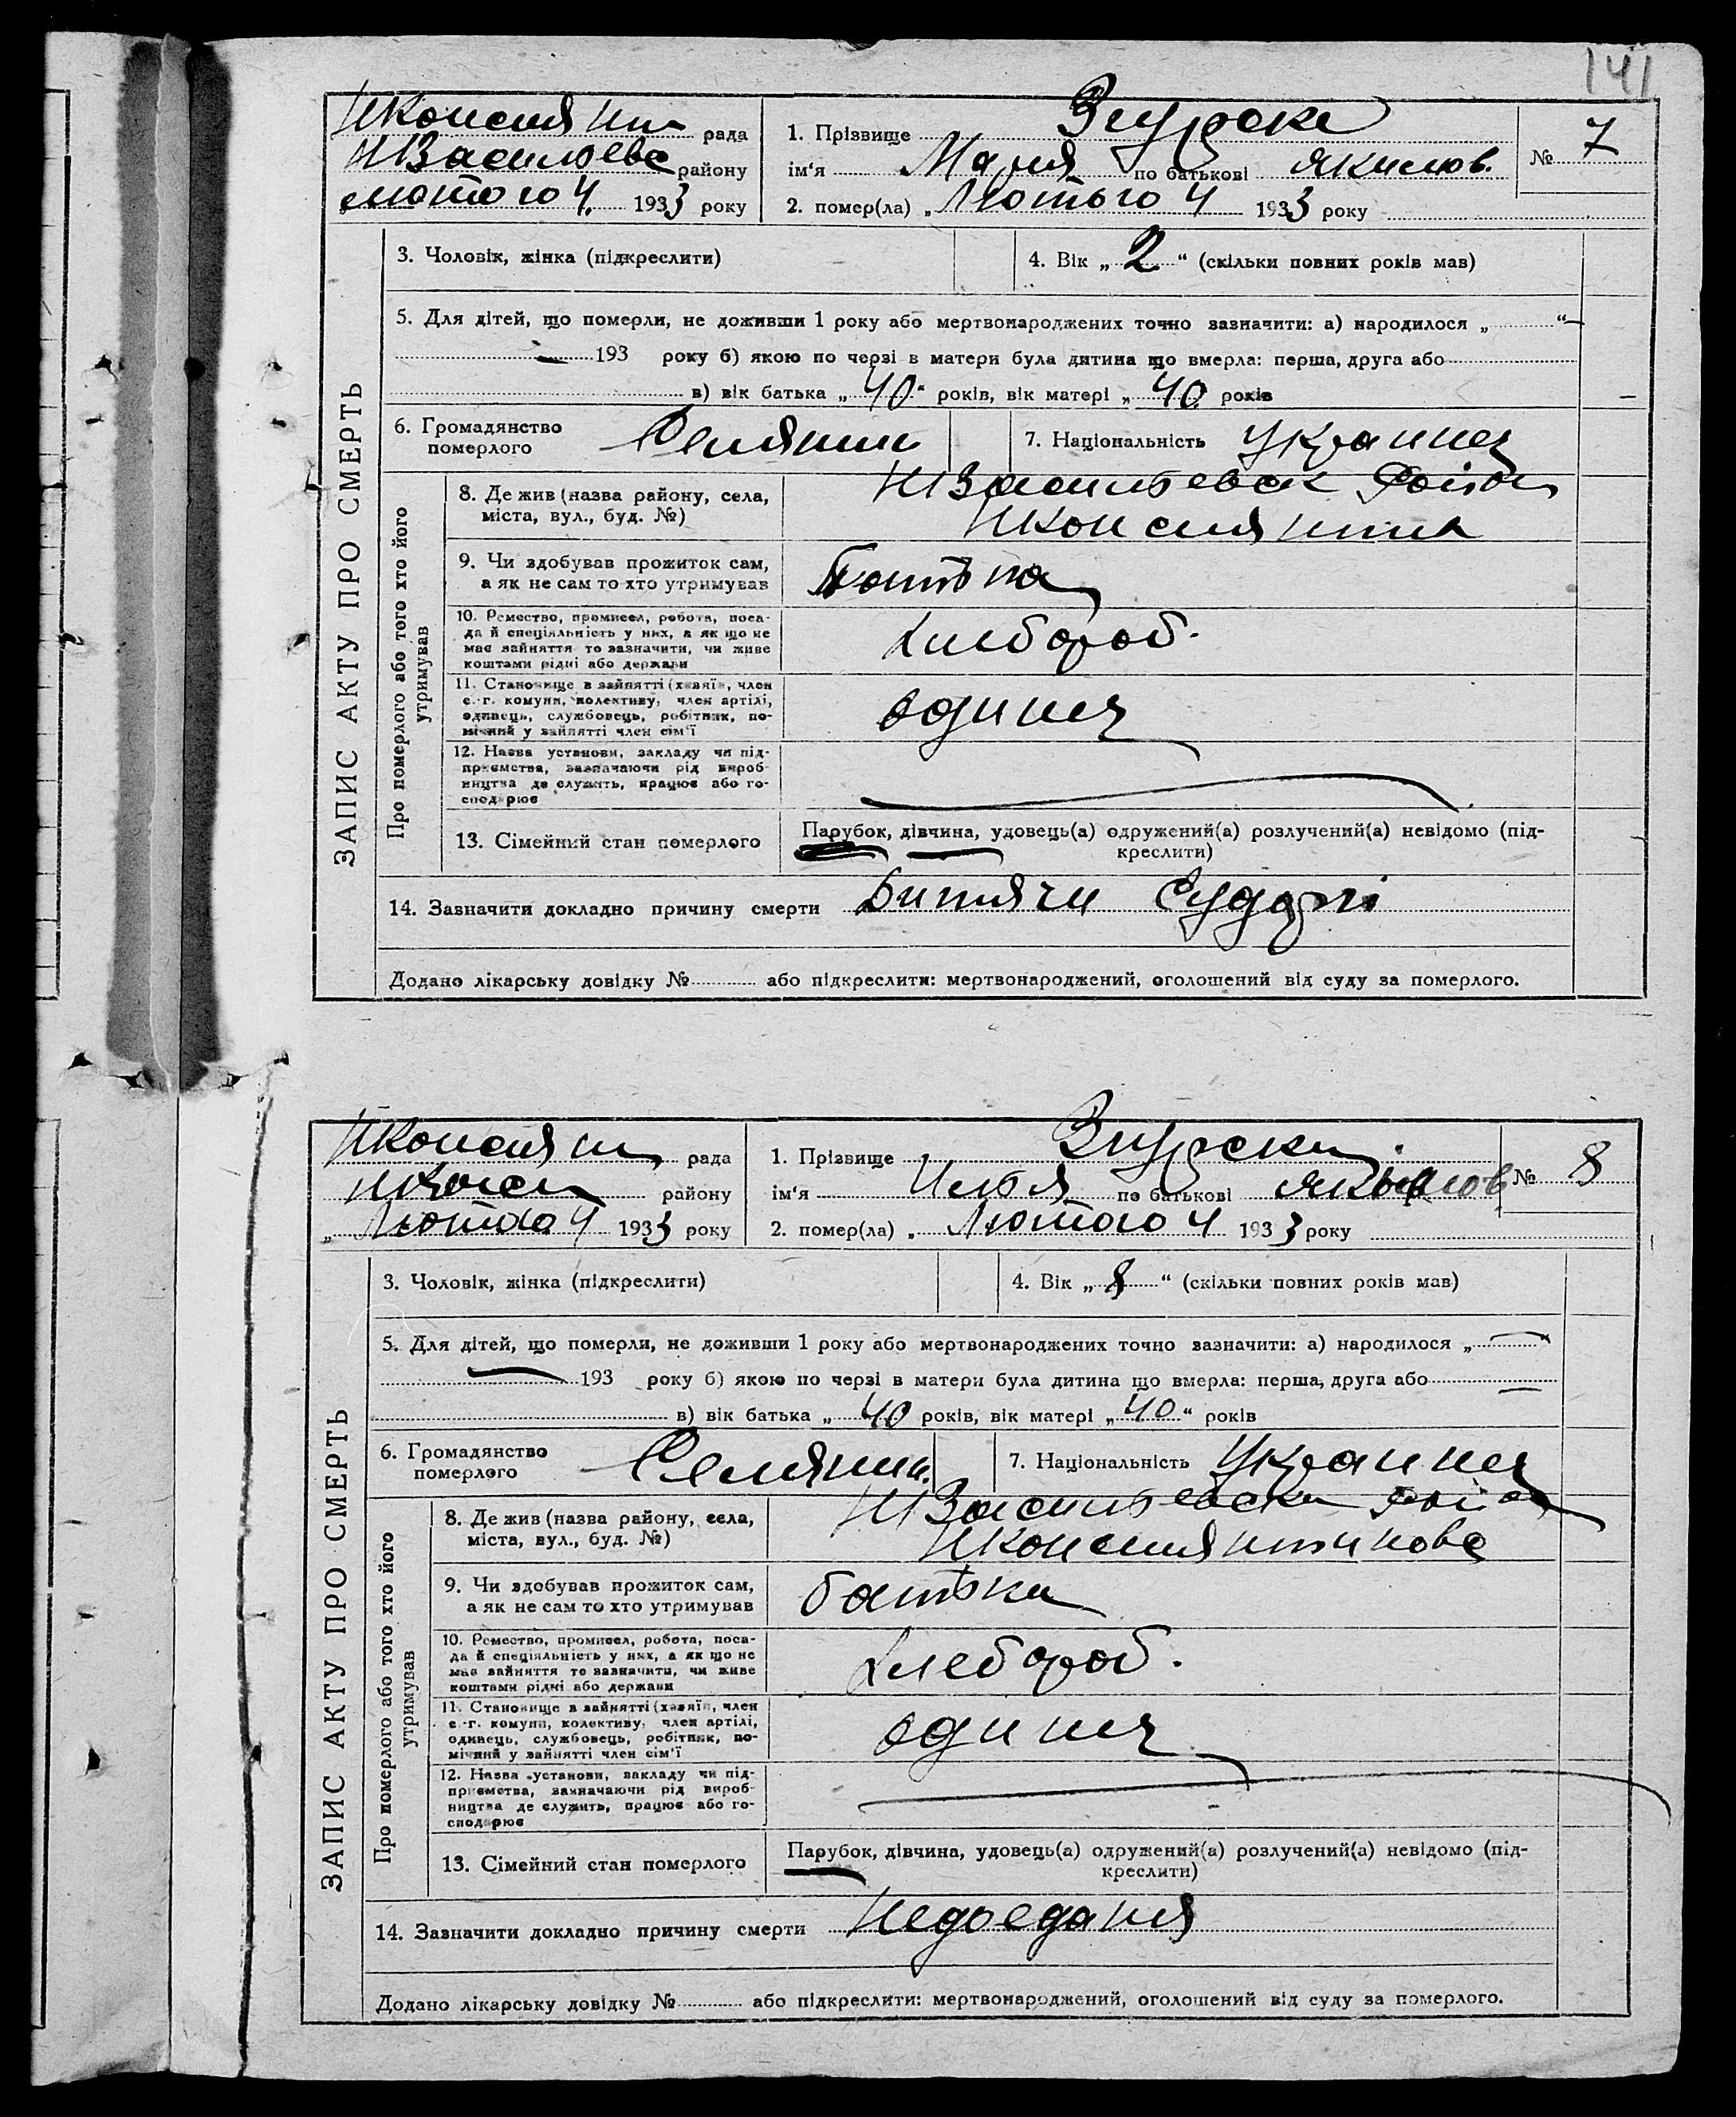 141
Нконстянти рада
НВасилевс району
лютого 4. 1933 року
1. Прізвище Згурски
ім'я Мария по батькові Якимов.
2. помер(ла) „Лютого 4 1933 року
№ 7
ЗАПИС АКТУ ПРО СМЕРТЬ
3. Чоловік, жінка (підкреслити)
4. Вік „ 2 “ (скільки повних років мав)
5. Для дітей, що померли, не доживши 1 року або мертвонароджених точно зазначити: а) народилося „ “
193 року б) якою по черзі в матери була дитина що вмерла: перша, друга або
в) вік батька „ 40 “ років, вік матері „ 40 років
6. Громадянство
померлого
Селянин
7. Національність Украинец
Про померлого або того хто його
утримував
8. Де жив (назва району, села,
міста, вул., буд. №)
НВасильевск Район
Нконстянтин
9. Чи здобував прожиток сам,
а як не сам то хто утримував
батька
10. Ремество, промисел, робота, поса-
да й спеціяльність у них, а як що не
має зайняття то зазначити, чи живе
коштами рідні або держави
Хлебороб.
11. Становище в зайнятті (хазяїн, член
с.-г. комуни, колективу, член артілі,
одинець, службовець, робітник, по-
мічний у зайнятті член сім'ї
одинец
12. Назва установи, закладу чи під-
приємства, зазначаючи рід вироб-
ництва де служить, працює або го-
сподарює
13. Сімейний стан померлого
Парубок, дівчина, удовець(а) одружений(а) розлучений(а) невідомо (під-
креслити)
14. Зазначити докладно причину смерти Дитячи Судоргі
Додано лікарську довідку № або підкреслити: мертвонароджений, оголошений від суду за померлого.
Нконстянти рада
району
„ Лютого 4 1933 року
1. Прізвище Згурски
ім'я Илья по батькові Якимов
2. помер(ла) „ Лютого 4 1933 року
№ 8
ЗАПИС АКТУ ПРО СМЕРТЬ
3. Чоловік, жінка (підкреслити)
4. Вік „ 8 “ (скільки повних років мав)
5. Для дітей, що померли, не доживши 1 року або мертвонароджених точно зазначити: а) народилося „ “
193 року б) якою по черзі в матери була дитина що вмерла: перша, друга або
в) вік батька „ 40 років, вік матері „ 40 “ років
6. Громадянство
померлого
Селянин.
7. Національність Украинец
Про померлого або того хто його
утримував
8. Де жив (назва району, села,
міста, вул., буд. №)
НВасильевски Район
Нконстянтинове
9. Чи здобував прожиток сам,
а як не сам то хто утримував
батька
10. Ремество, промисел, робота, поса-
да й спеціяльність у них, а як що не
має зайняття то зазначити, чи живе
коштами рідні або держави
Хлебороб.
11. Становище в зайнятті (хазяїн, член
с.-г. комуни, колективу, член артілі,
одинець, службовець, робітник, по-
мічний у зайнятті член сім'ї
одинец
12. Назва установи, закладу чи під-
приємства, зазначаючи рід вироб-
ництва де служить, працює або го-
сподарює
13. Сімейний стан померлого
Парубок, дівчина, удовець(а) одружений(а) розлучений(а) невідомо (під-
креслити)
14. Зазначити докладно причину смерти Недоедания
Додано лікарську довідку № або підкреслити: мертвонароджений, оголошений від суду за померлого.